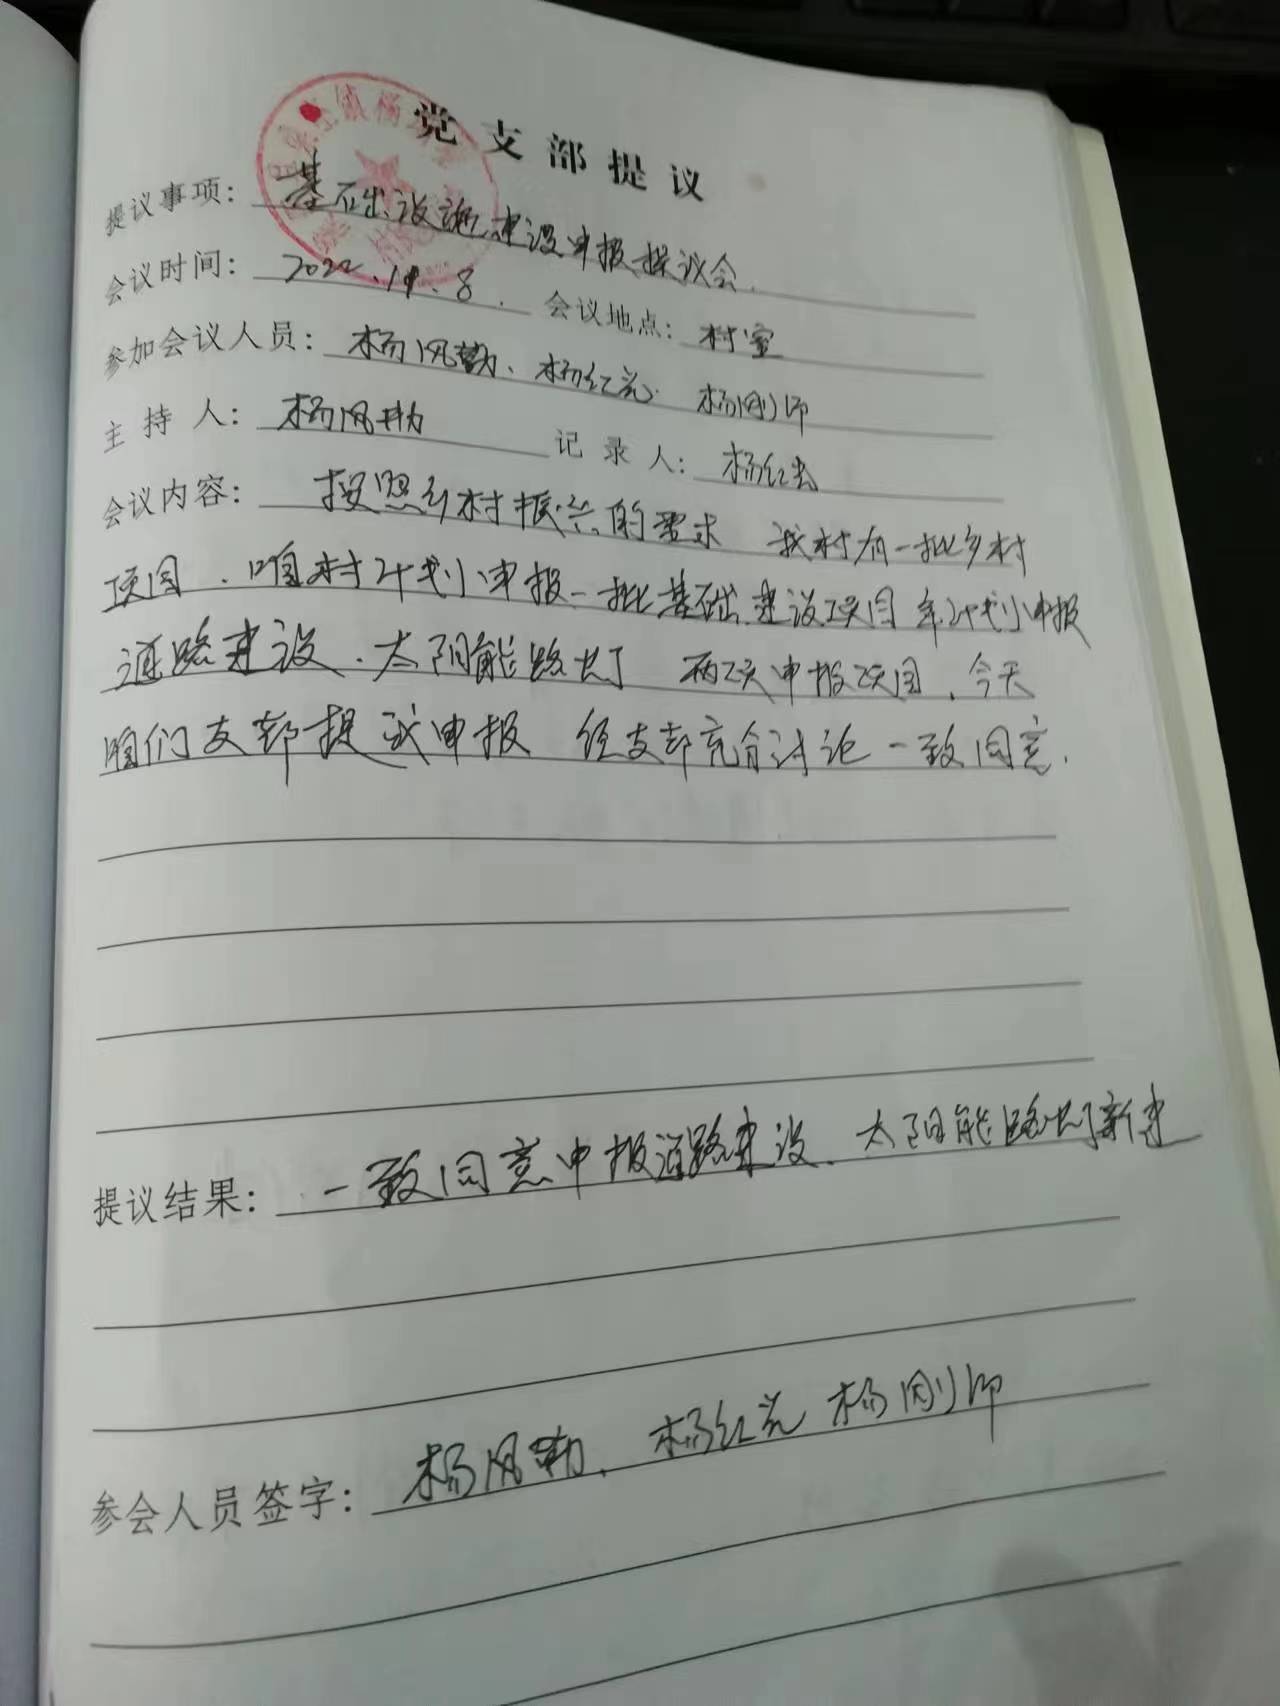 党支部提议
提议事项：基础设施建设申报提议会.
会议时间：2022.11.8. 会议地点：村室
参加会议人员：杨凤勤、杨红 杨刚师
主持人：杨凤勤 记录人：杨红
会议内容：按照乡村振兴的需求 我村有一批乡村
项目、咱村计划申报一批基础建设项目 计划申报
道路建设、太阳能路灯 两项申报项目、今天
咱们支部提议申报 经支部充分讨论一致同意.
提议结果：一致同意申报道路建设、太阳能路灯新建
参会人员签字：杨凤勤、杨红 杨刚师